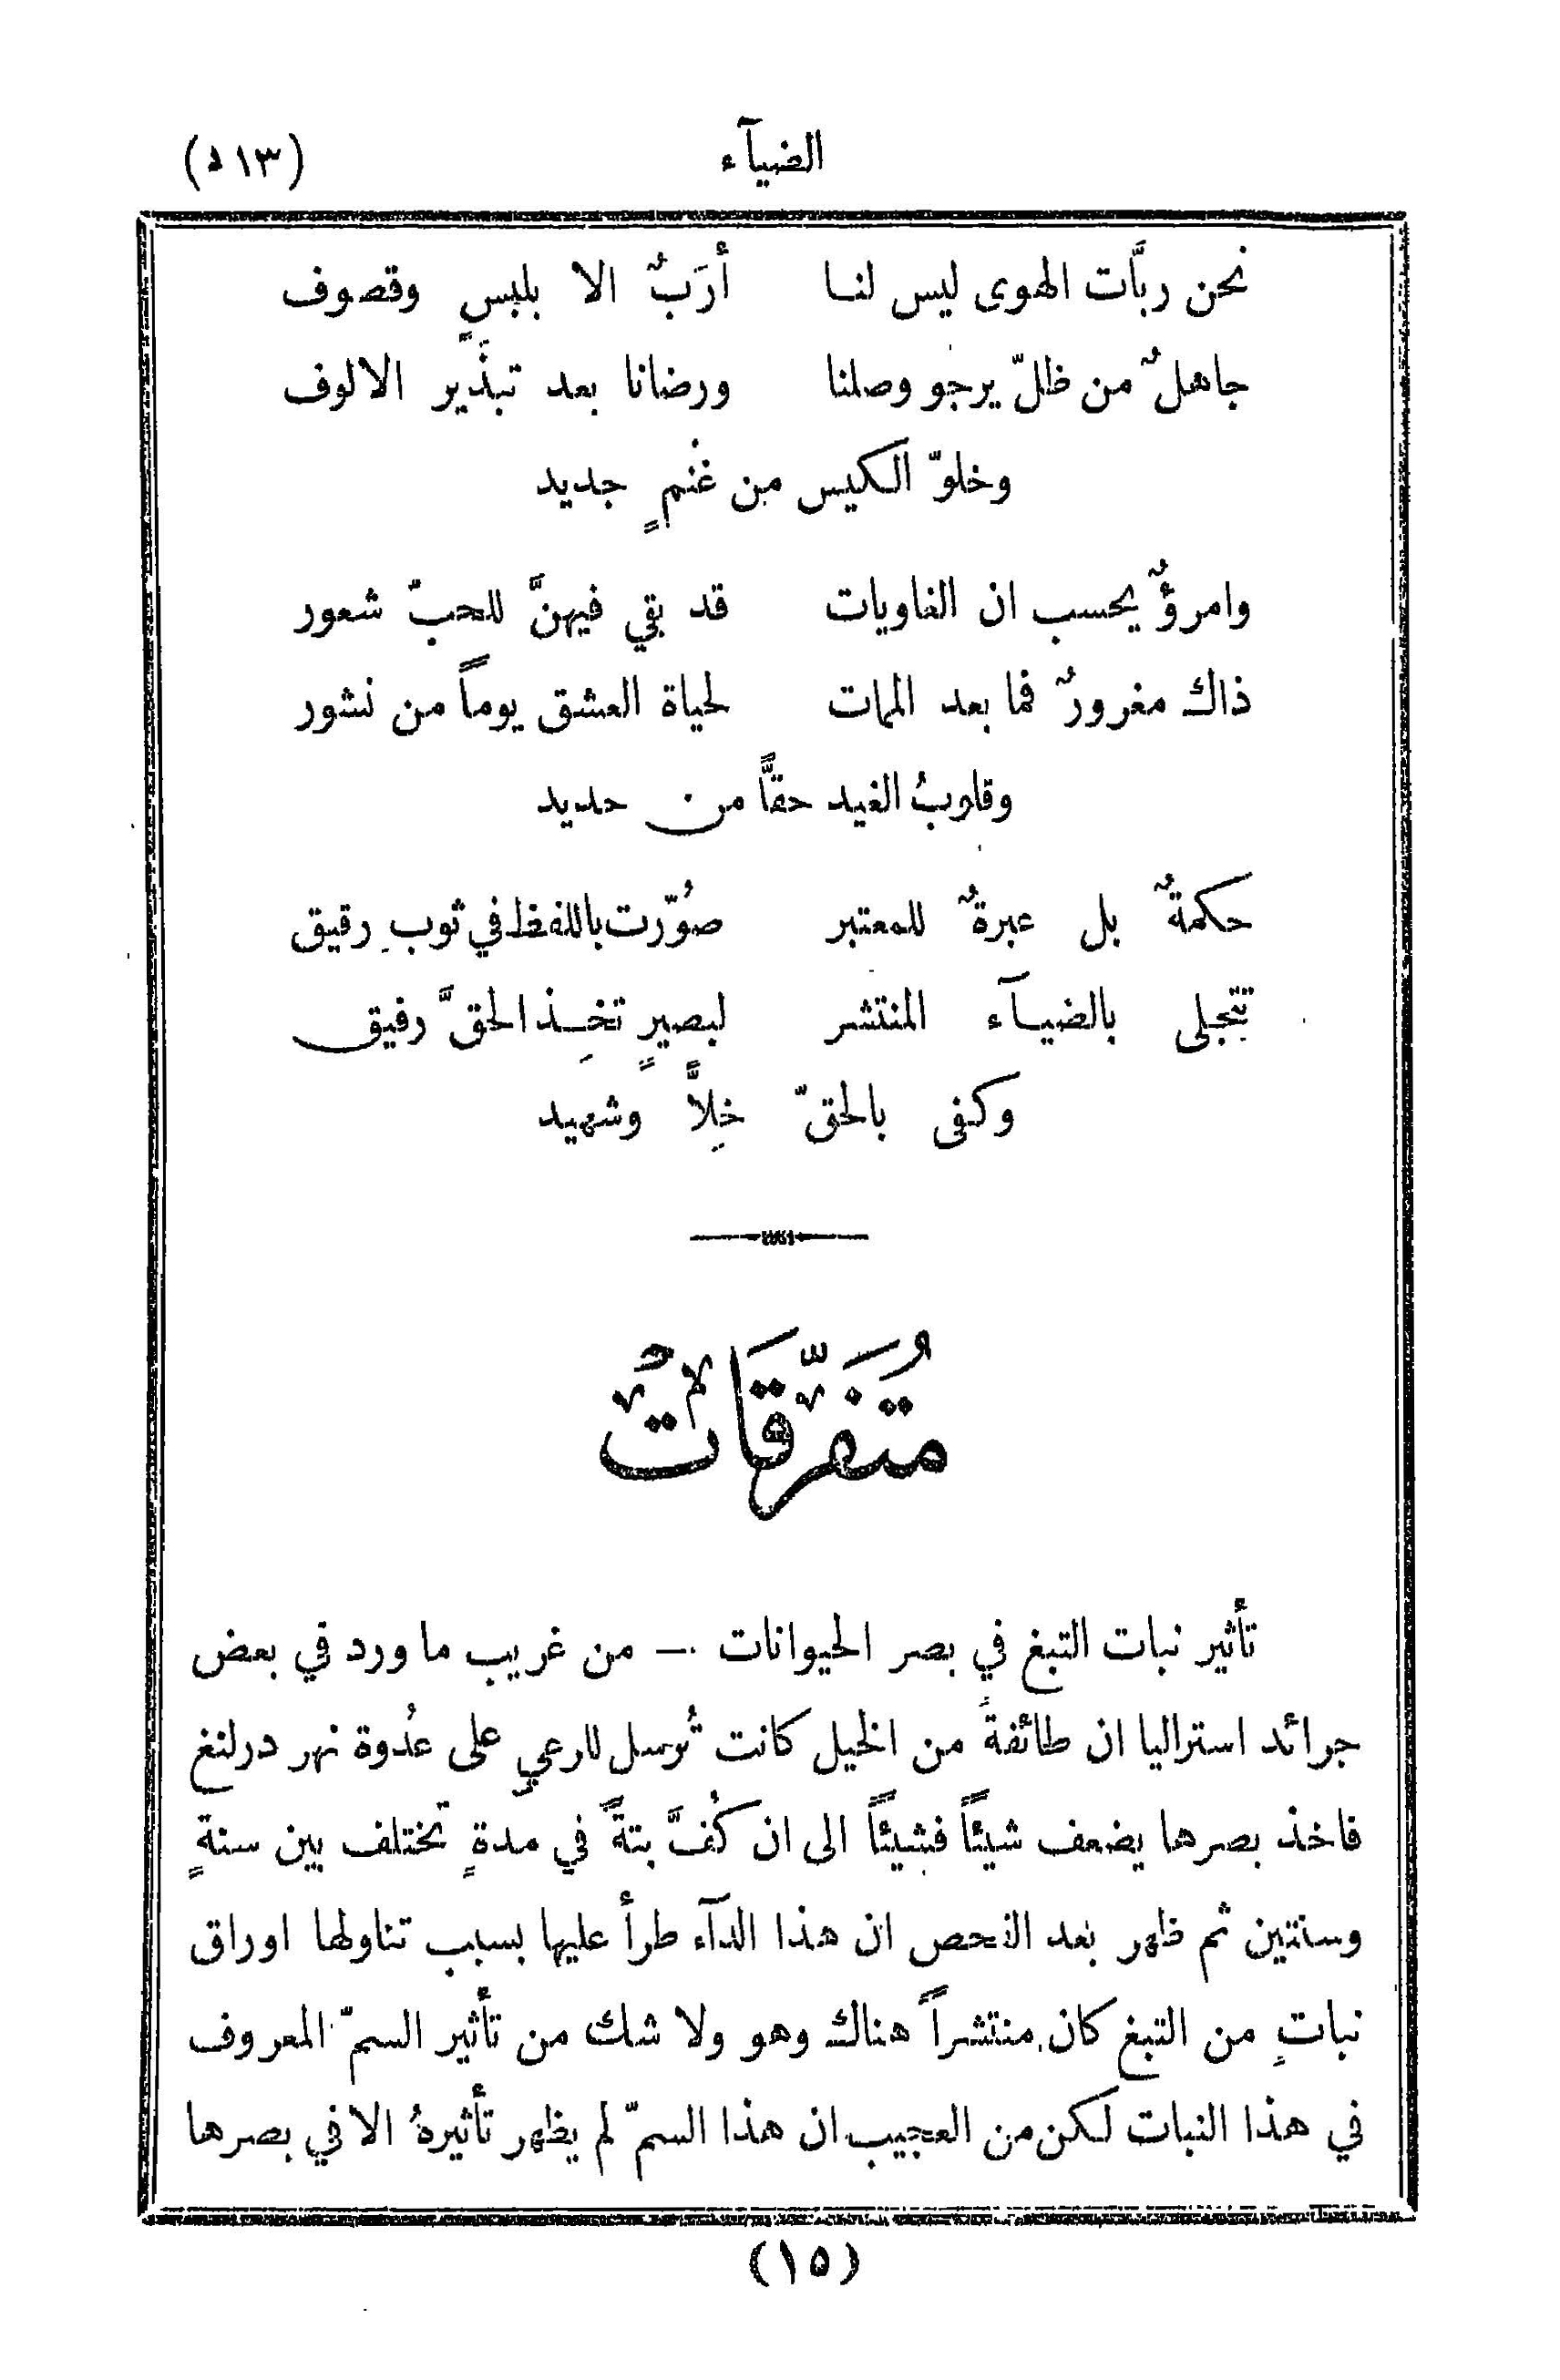 الضيآء (٥١٣)
نحن ربَّات الهوى ليس لنا أرَبٌ الا بلبسٍ وقصوف
جاهلٌ من ظلّ يرجو وصلنا ورضانا بعد تبذير الالوف
وخلوّ الكيس من غُنمٍ جديد
وامرؤٌ يحسب ان الغاويات قد بقي فيهنَّ للحبّ شعور
ذاك مغرورٌ فما بعد الممات لحياة العشق يوماً من نشور
وقلوبُ الغيد حقاًّ من حديد
حكمةٌ بل عبرةٌ للمعتبر صُوّرت باللفظ في ثوبِ رقيق
تتجلى بالضيآء المنتشر لبصيرٍ تخِذ الحقَّ رفيق
وكفى بالحقّ خِلاًّ وشهيد
مُتَفَرِّقَاتٌ
تأثير نبات التبغ في بصر الحيوانات — من غريب ما ورد في بعض
جرائد استراليا ان طائفةً من الخيل كانت تُرسل للرعي على عُدوة نهر درلنغ
فاخذ بصرها يضعف شيئاً فشيئاً الى ان كُفَّ بتةً في مدةٍ تختلف بين سنةٍ
وسنتين ثم ظهر بعد الفحص ان هذا الدآء طرأ عليها بسبب تناولها اوراق
نباتٍ من التبغ كان منتشراً هناك وهو ولا شك من تأثير السمّ المعروف
في هذا النبات لكن من العجيب ان هذا السمّ لم يظهر تأثيرهُ الا في بصرها
(١٥)